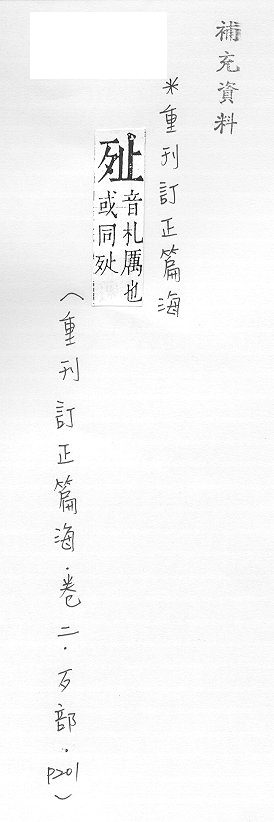 補充資料
*重刊訂正篇海
音札厲也
或同
（重刊訂正篇海．卷二．歹部．P201）